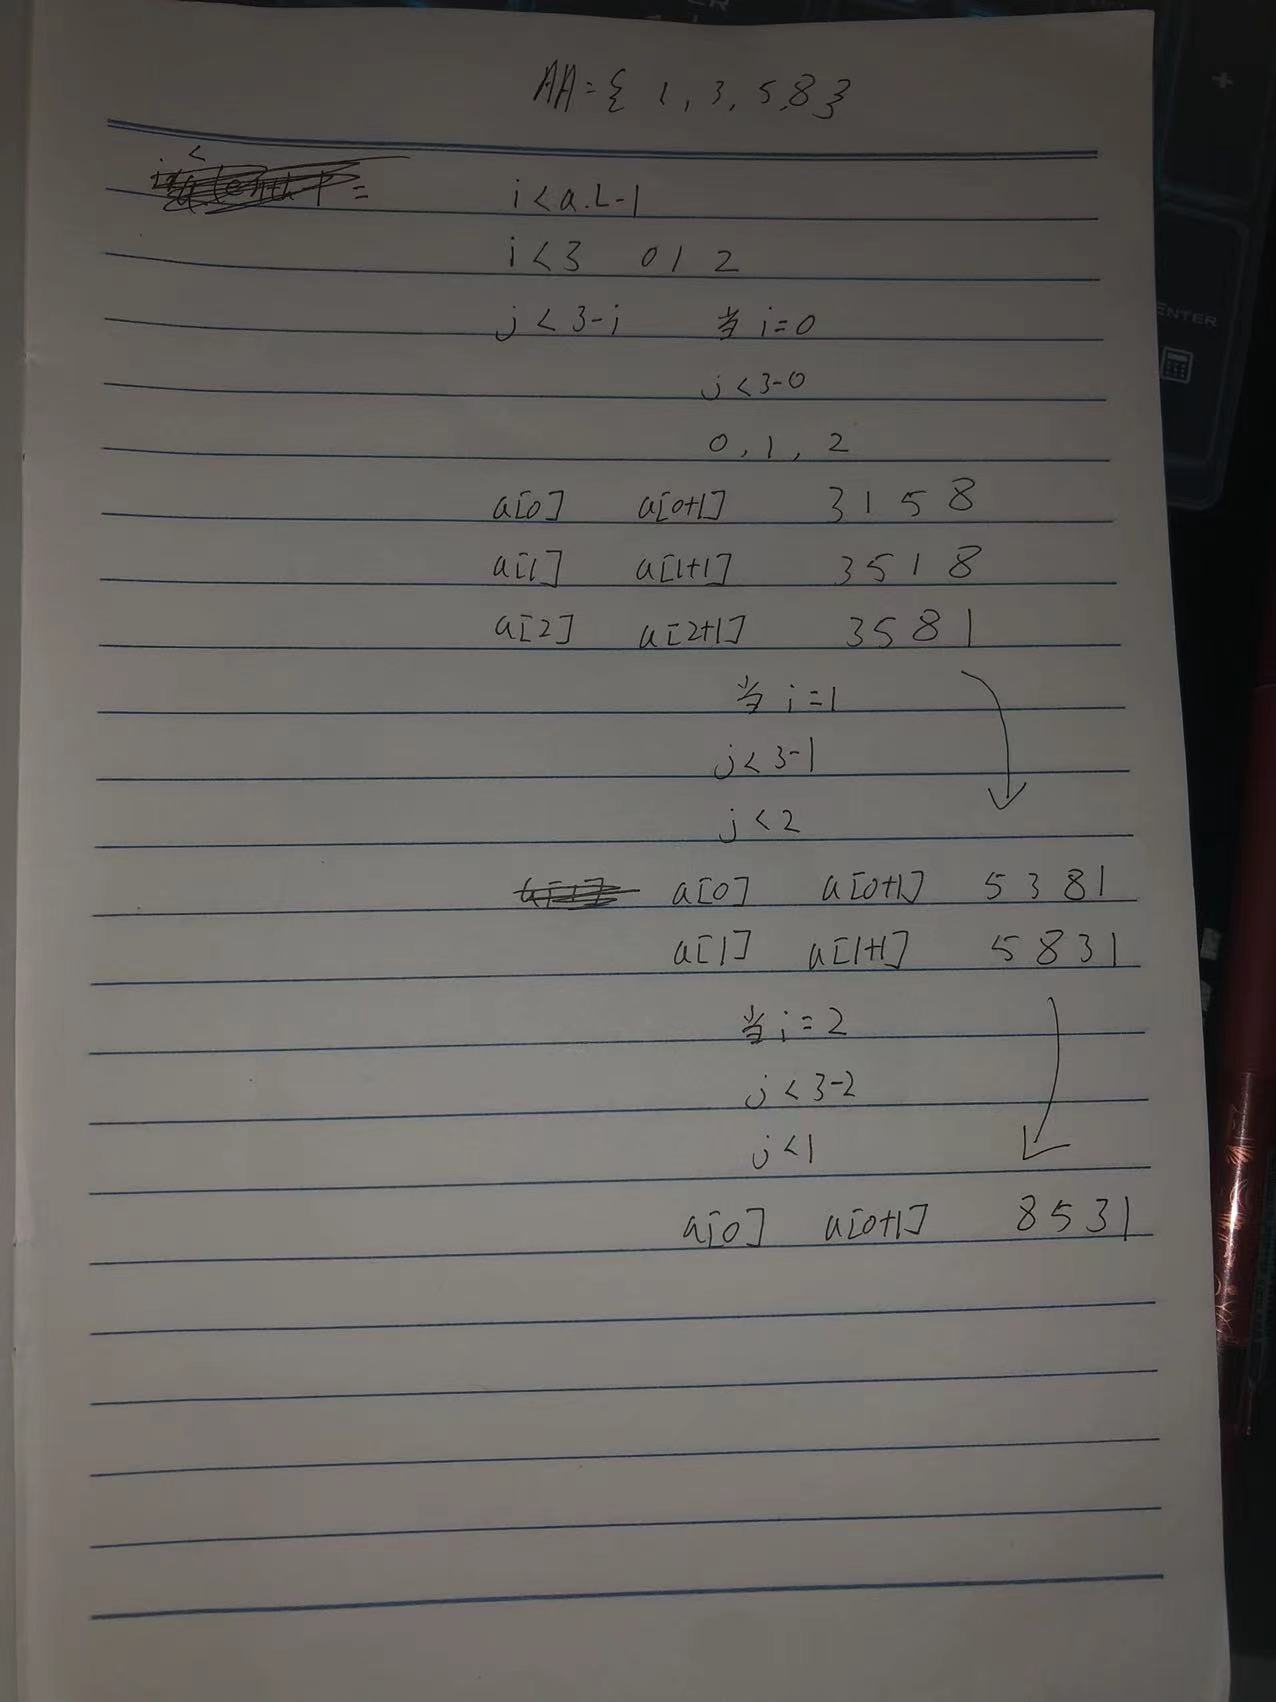 AA={ 1, 3, 5, 8}
i<a.L-1
i<3 0 1 2
j<3-i 当 i=0
j<3-0
0, 1, 2
a[0] a[0+1] 3 1 5 8
a[1] a[1+1] 3 5 1 8
a[2] a[2+1] 3 5 8 1
当 i=1
j<3-1
j<2
a[0] a[0+1] 5 3 8 1
a[1] a[1+1] 5 8 3 1
当 i=2
j<3-2
j<1
a[0] a[0+1] 8 5 3 1
ENTER